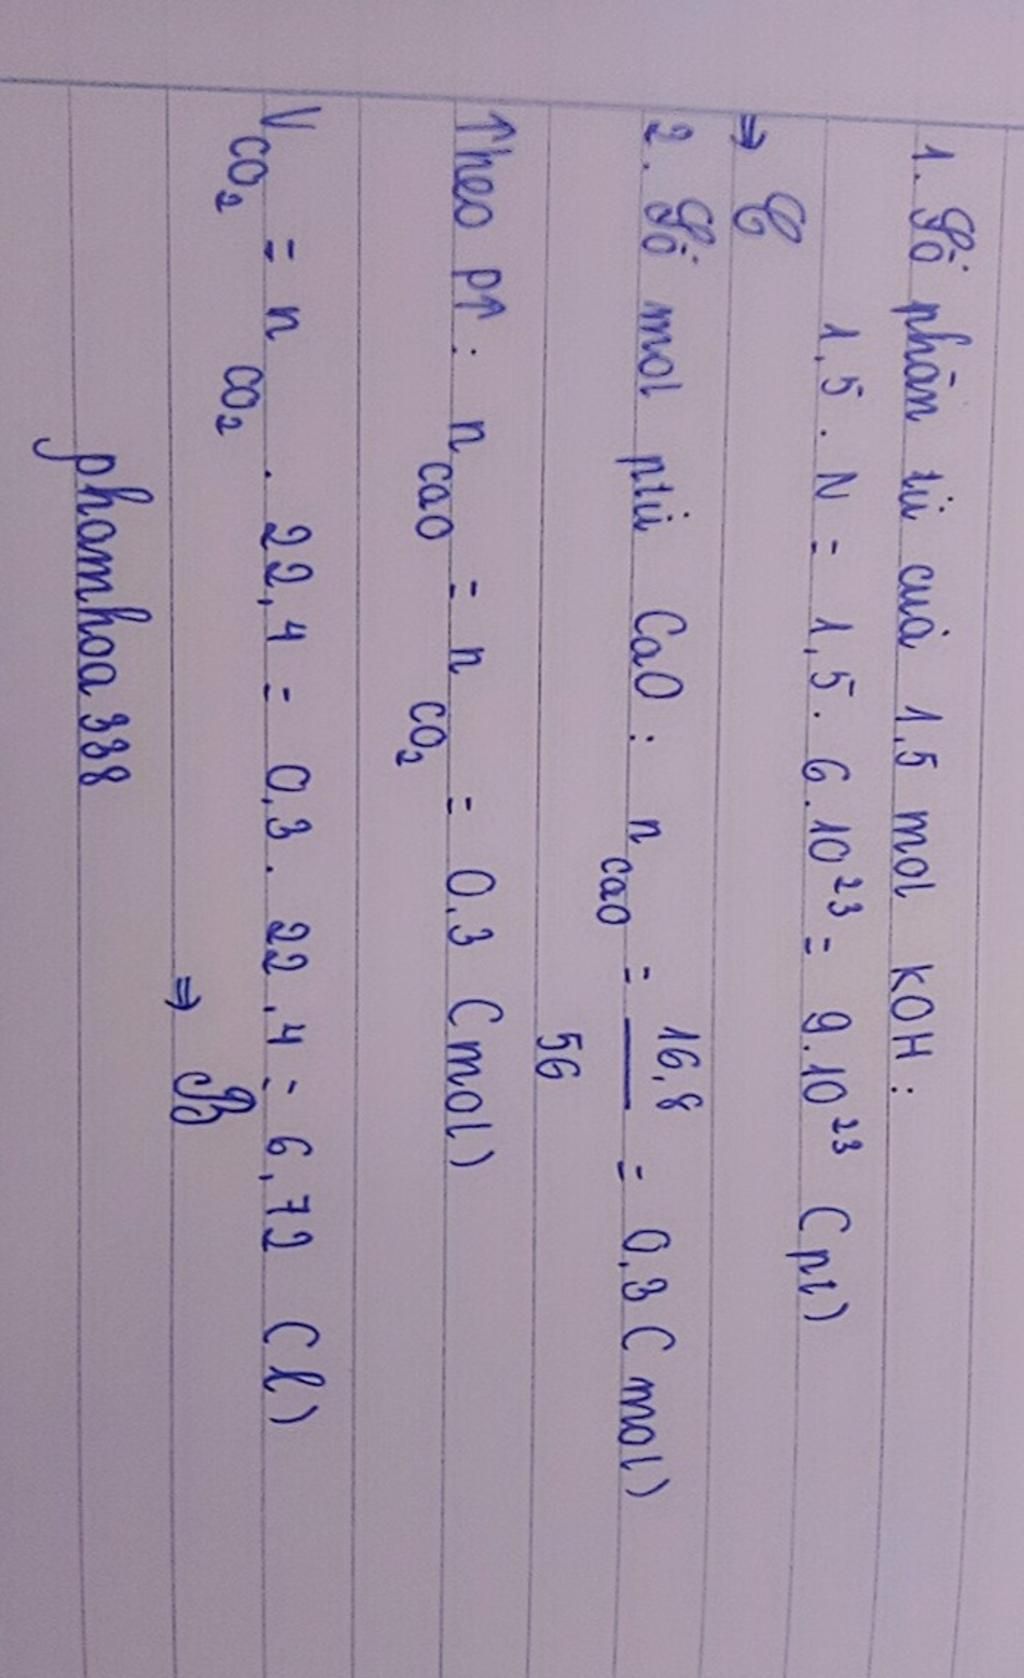 1. Số phân tử của 1,5 mol KOH:
1,5 . N = 1,5 . 6.10²³ = 9.10²³ (pt)
⇒ C
2. Số mol ptử CaO : n_CaO = 16,8 / 56 = 0,3 (mol)
Theo pt : n_CaO = n_CO₂ = 0,3 (mol)
V_CO₂ = n_CO₂ . 22,4 = 0,3 . 22,4 = 6,72 (l)
⇒ B
phamhoa338